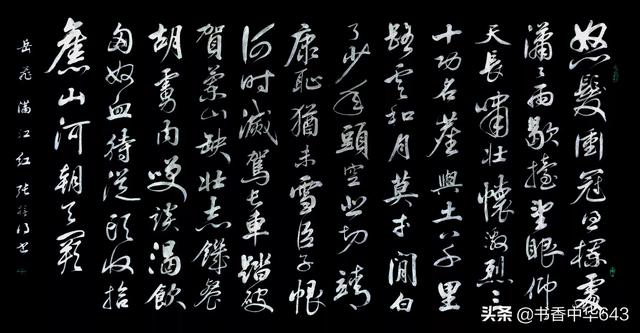 怒髮衝冠凭欄處
瀟〻雨歇抬望眼仰
天長嘯壯懷激烈三
十功名塵與土八千里
路雲和月莫等閒白
了少年頭空悲切靖
康恥猶未雪臣子恨
何時滅駕長車踏破
賀蘭山缺壯志饑餐
胡虜肉笑談渴飲
匈奴血待從頭收拾
舊山河朝天闕
岳飛 滿江紅 張 書
头条 @书香中华643